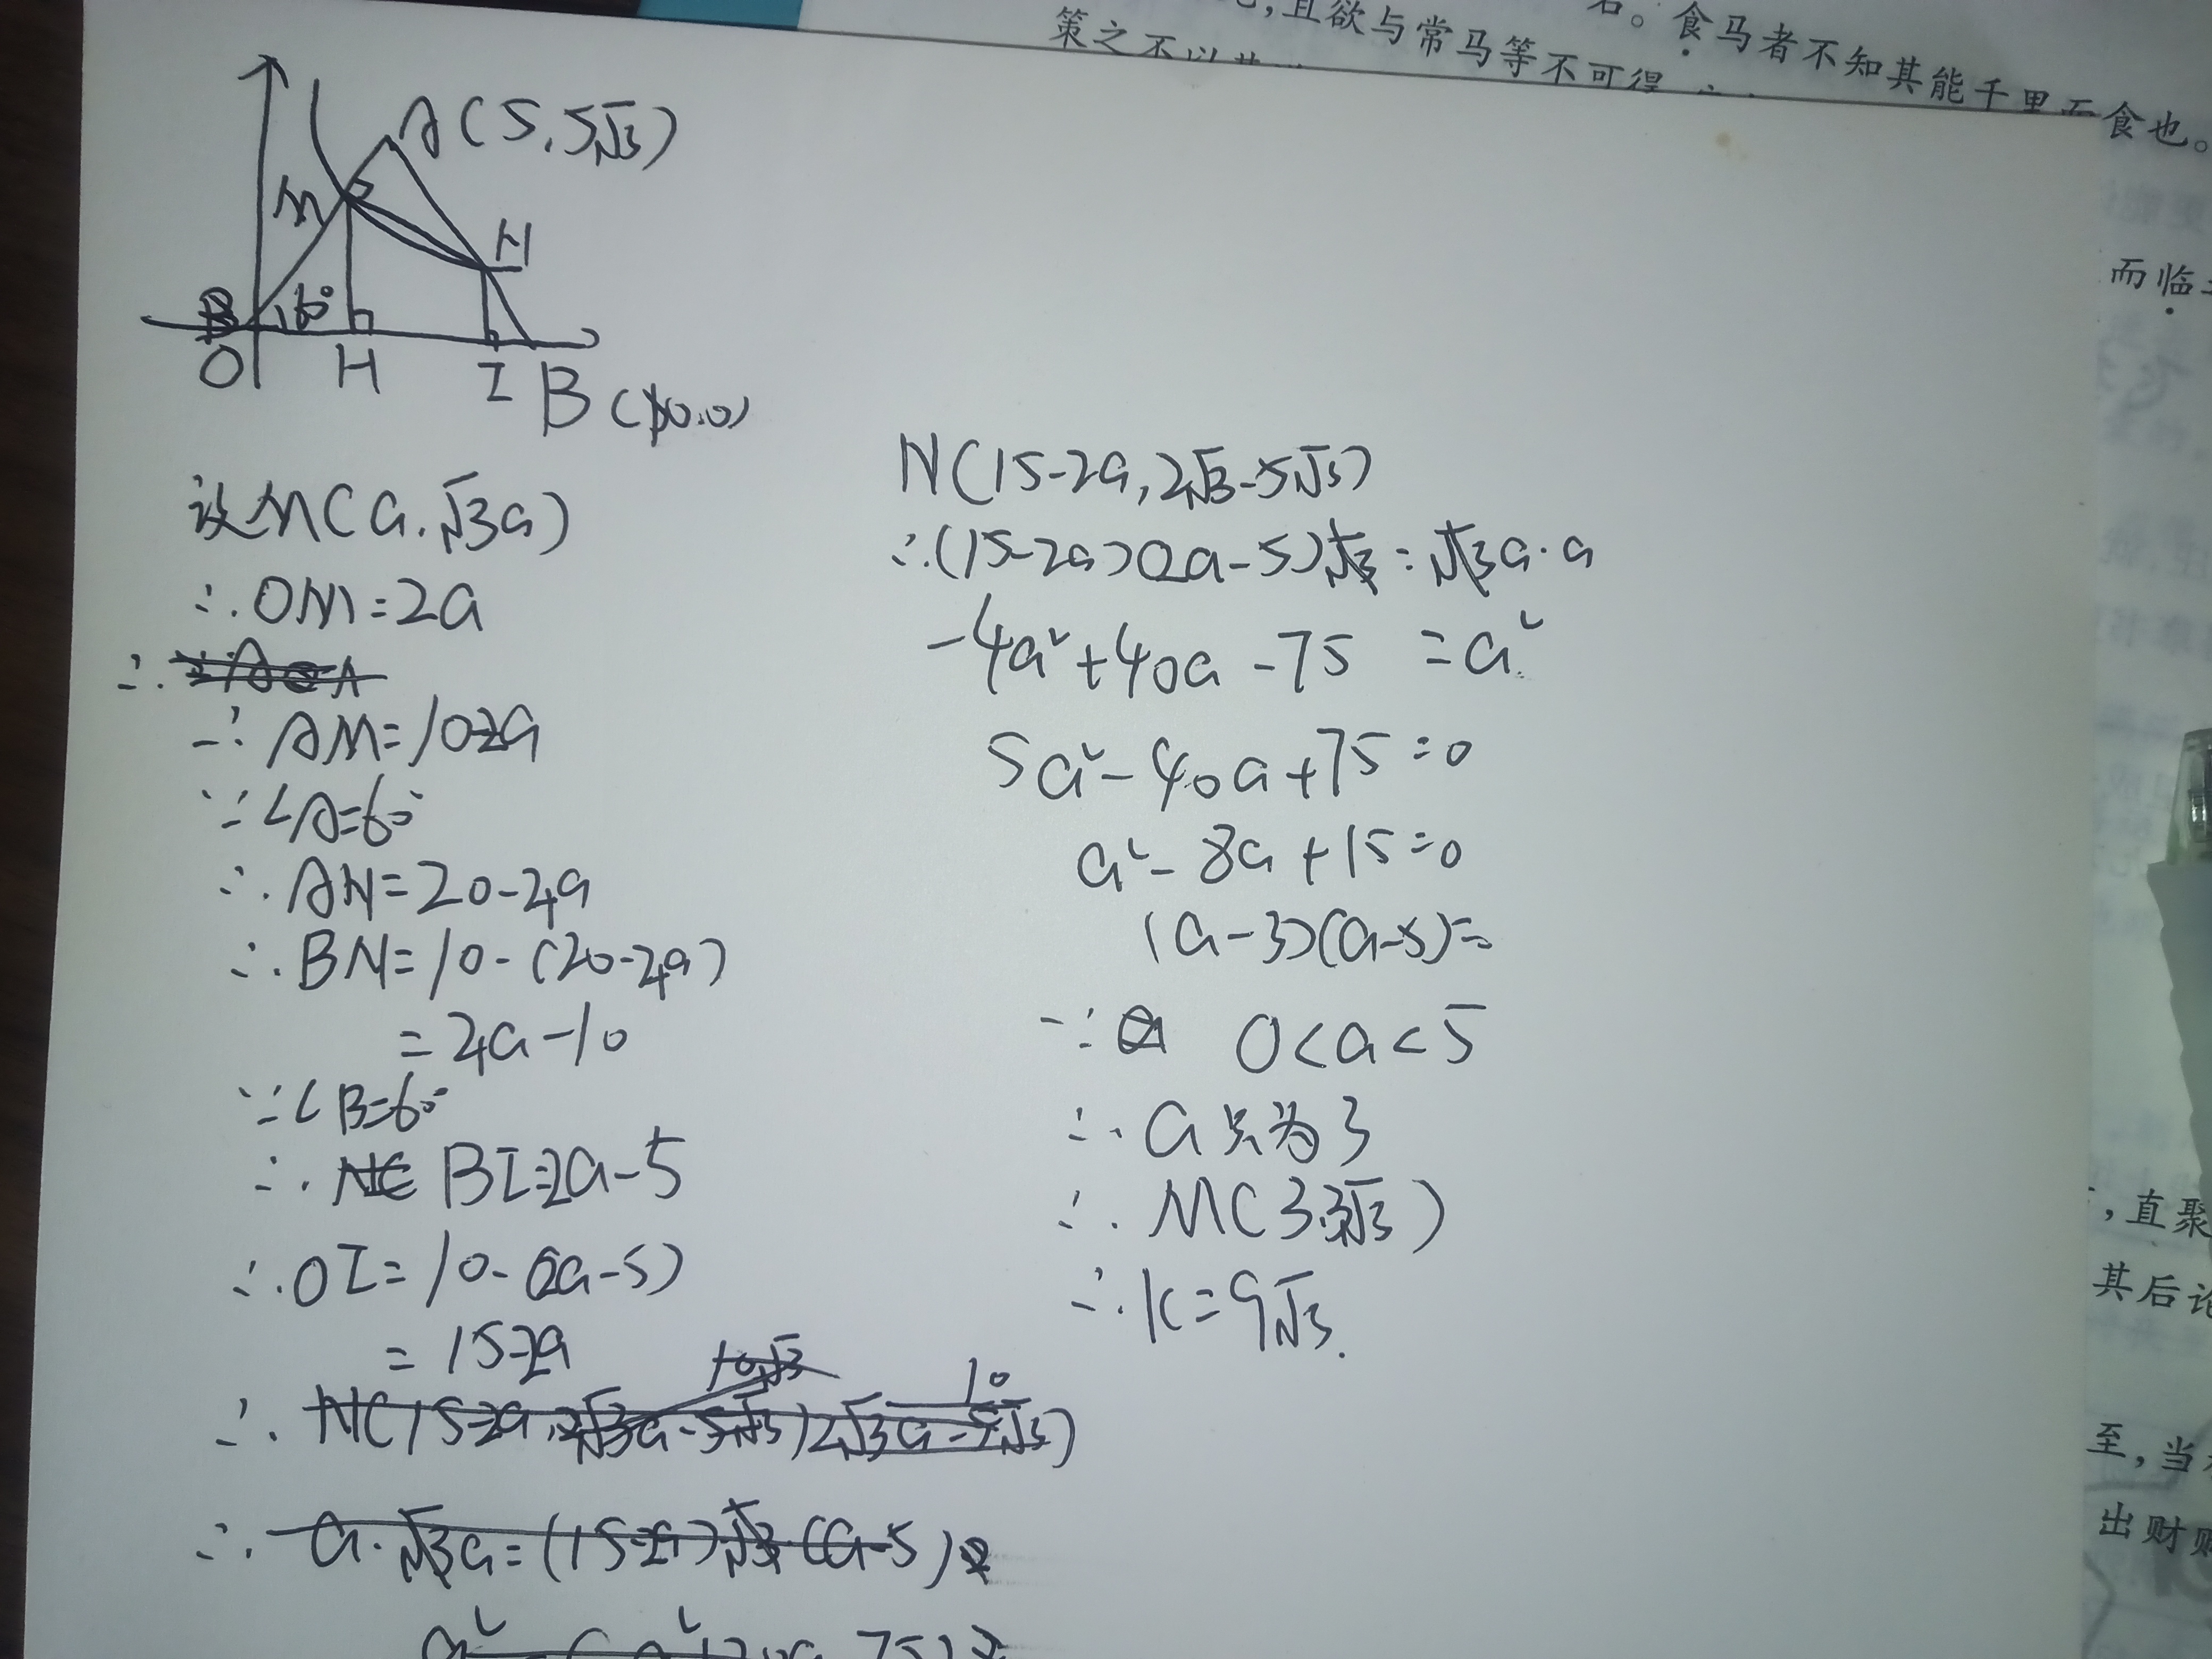 策之不以其
且欲与常马等不可得
食马者不知其能千里而食也。
而临
，直聚
其后论
至，当
出财
A(5,5√3)
M
N
B
60°
O H I B(10,0)
设M(a,√3a)
∴OM=2a
∴
∵AM=10-2a
∵∠A=60°
∴AN=20-4a
∴BN=10-(20-4a)
=4a-10
∵∠B=60°
∴BI=2a-5
∴OI=10-(2a-5)
=15-2a
10√3
10
∴N(15-2a,2√3a-5√3)2√3a-5√3)
∴a·√3a=(15-2a)√3(a-5)2
N(15-2a,2√3-5√3)
∴(15-2a)(2a-5)√3=√3a·a
-4a²+40a-75=a²
5a²-40a+75=0
a²-8a+15=0
(a-3)(a-5)=
∵a 0<a<5
∴a只为3
∴M(3,3√3)
∴k=9√3.